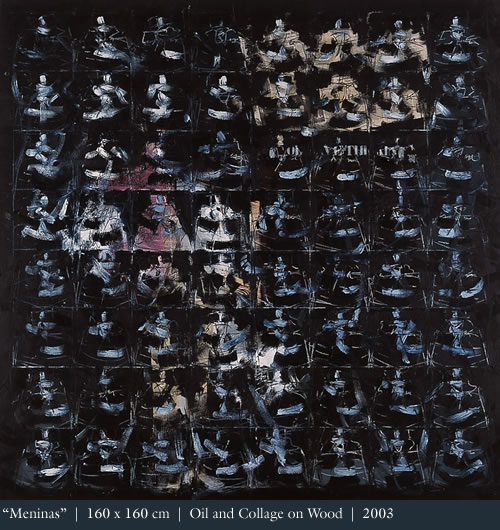 “Meninas” | 160 x 160 cm | Oil and Collage on Wood | 2003